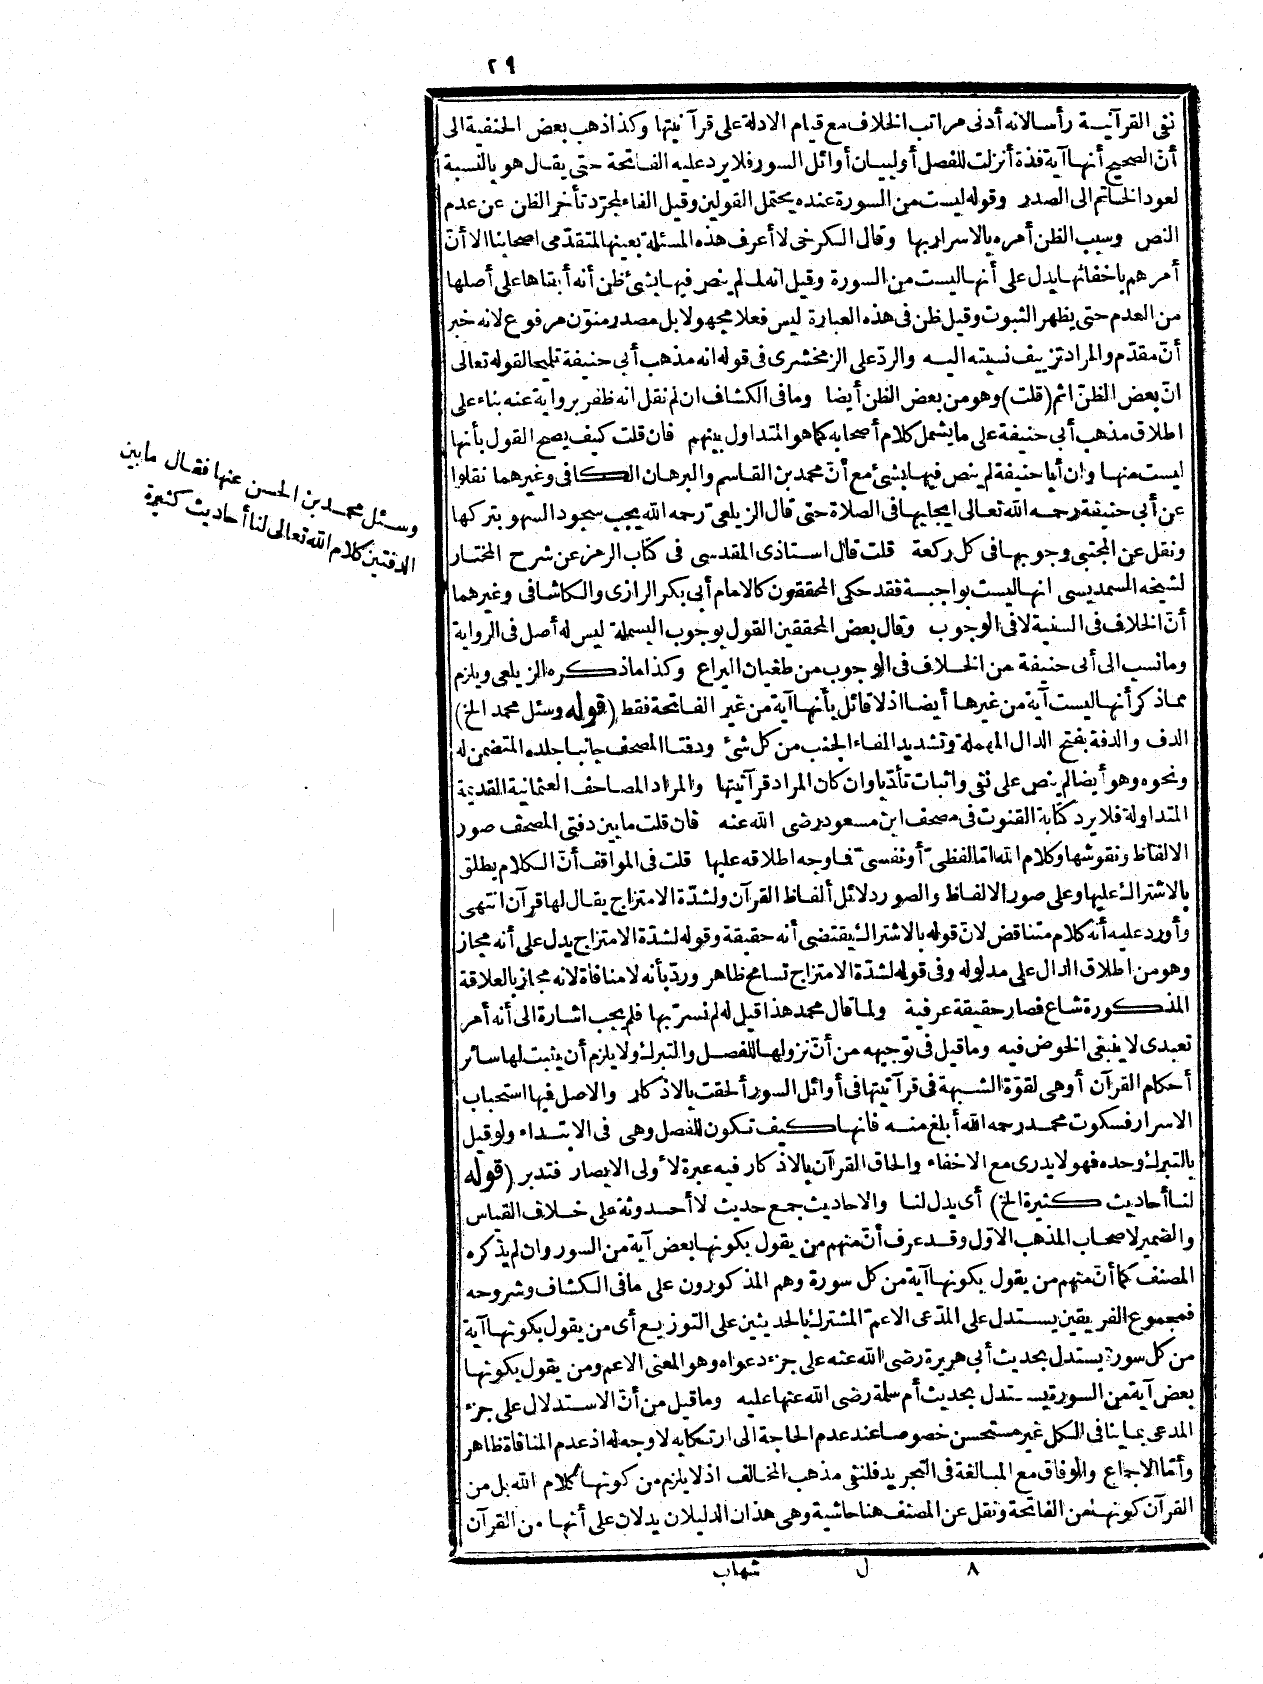 ٢٩
نفى القرآنية رأسا لانه أدنى مراتب الخلاف مع قيام الادلة على قرآنيتها وكذا ذهب بعض الحنفية الى
أنّ الصحيح أنها آية فذة أنزلت للفصل أو لبيان أوائل السور فلا يرد عليه الفاتحة حتى يقال هو بالنسبة
لعود الخاتم الى الصدر وقوله ليست من السورة عنده يحتمل القولين وقيل الفاء لمجرّد تأخر الظن عن عدم
النص وسبب الظن أمره بالاسرار بها وقال الكرخى لا أعرف هذه المسئلة بعينها لمتقدّمى اصحابنا الا أنّ
أمرهم باخفائها يدل على أنها ليست من السورة وقيل انه لما لم ينص فيها بشئ ظن أنه أبقاها على أصلها
من العدم حتى يظهر الثبوت وقيل ظن فى هذه العبارة ليس فعلا مجهولا بل مصدر منوّن مرفوع لانه خبر
أنّ مقدّم والمراد تزييف نسبته اليه والردّ على الزمخشرى فى قوله انه مذهب أبى حنيفة تلميحا لقوله تعالى
انّ بعض الظنّ اثم (قلت) وهو من بعض الظن أيضا وما فى الكشاف ان لم نقل انه ظفر برواية عنه بناء على
اطلاق مذهب أبى حنيفة على ما يشمل كلام أصحابه كما هو المتداول بينهم فان قلت كيف يصح القول بأنها
ليست منها وان أبا حنيفة لم ينص فيها بشئ مع أنّ محمد بن القاسم والبرهان الكافى وغيرهما نقلوا
عن أبى حنيفة رحمه الله تعالى ايجابها فى الصلاة حتى قال الزيلعىّ رحمه الله يجب سجود السهو بتركها
ونقل عن المجتبى وجوبها فى كل ركعة قلت قال استاذى المقدسى فى كتاب الرمز عن شرح المختار
لشيخه السمديسى انها ليست بواجبة فقد حكى المحققون كالامام أبى بكر الرازى والكاشافى وغيرهما
أنّ الخلاف فى السنية لا فى الوجوب وقال بعض المحققين القول بوجوب البسملة ليس له أصل فى الرواية
وما نسب الى أبى حنيفة من الخلاف فى الوجوب من طغيان اليراع وكذا ما ذكره الزيلعى ويلزم
مما ذكر أنها ليست آية من غيرها أيضا اذ لا قائل بأنها آية من غير الفاتحة فقط (قوله وسئل محمد الخ)
الدف والدفة بفتح الدال المهملة وتشديد الفاء الجنب من كل شئ ودفتا المصحف جانبا جلده المتضمن له
ونحوه وهو أيضا لم ينص على نفى واثبات تأدّبا وان كان المراد قرآنيتها والمراد المصاحف العثمانية القديمة
المتداولة فلا يرد كتابة القنوت فى مصحف ابن مسعود رضى الله عنه فان قلت ما بين دفتى المصحف صور
الالفاظ ونقوشها وكلام الله امّا لفظىّ أو نفسىّ فما وجه اطلاقه عليها قلت فى المواقف أنّ الكلام يطلق
بالاشتراك عليها وعلى صور الالفاظ والصور دلائل ألفاظ القرآن ولشدّة الامتزاج يقال لها قرآن انتهى
وأورد عليه أنه كلام متناقض لانّ قوله بالاشتراك يقتضى أنه حقيقة وقوله لشدّة الامتزاج يدل على أنه مجاز
وهو من اطلاق الدال على مدلوله وفى قوله لشدّة الامتزاج تسامح ظاهر وردّ بأنه لا منافاة لانه مجاز بالعلاقة
المذكورة شاع فصار حقيقة عرفية ولما قال محمد هذا قيل له لم نسرّ بها فلم يجب اشارة الى أنه أمر
تعبدى لا ينبغى الخوض فيه وما قيل فى توجيهه من أنّ نزولها للفصل والتبرك ولا يلزم أن يثبت لها سائر
أحكام القرآن أو هى لقوّة الشبهة فى قرآنيتها فى أوائل السور ألحقت بالاذكار والاصل فيها استحباب
الاسرار فسكوت محمد رحمه الله أبلغ منه فانها كيف تكون للفصل وهى فى الابتداء ولو قيل
بالتبرك وحده فهو لا يدرى مع الاخفاء والحاق القرآن بالاذكار فيه عبرة لأولى الابصار فتدبر (قوله
لنا أحاديث كثيرة الخ) أى يدل لنا والاحاديث جمع حديث لا أحدوثة على خلاف القياس
والضمير لاصحاب المذهب الاوّل وقد عرف أنّ منهم من يقول بكونها بعض آية من السور وان لم يذكره
المصنف كما أنّ منهم من يقول بكونها آية من كل سورة وهم المذكورون على ما فى الكشاف وشروحه
فمجموع الفريقين يستدل على المدّعى الاعمّ المشترك بالحديثين على التوزيع أى من يقول بكونها آية
من كل سورة يستدل بحديث أبى هريرة رضى الله عنه على جزء دعواه وهو المعنى الاعم ومن يقول بكونها
بعض آية من السورة يستدل بحديث أم سلمة رضى الله عنها عليه وما قيل من أنّ الاستدلال على جزء
المدعى بما ينافى الكل غير مستحسن خصوصا عند عدم الحاجة الى ارتكابه لا وجه له اذ عدم المنافاة ظاهر
وأمّا الاجماع والوفاق مع المبالغة فى التجريد فلنفى مذهب المخالف اذ لا يلزم من كونها كلام الله بل من
القرآن كونها من الفاتحة ونقل عن المصنف هنا حاشية وهى هذان الدليلان يدلان على أنها من القرآن
٨ ل شهاب
وسئل محمد بن الحسن عنها فقال ما بين
الدفتين كلام الله تعالى لنا أحاديث كثيرة